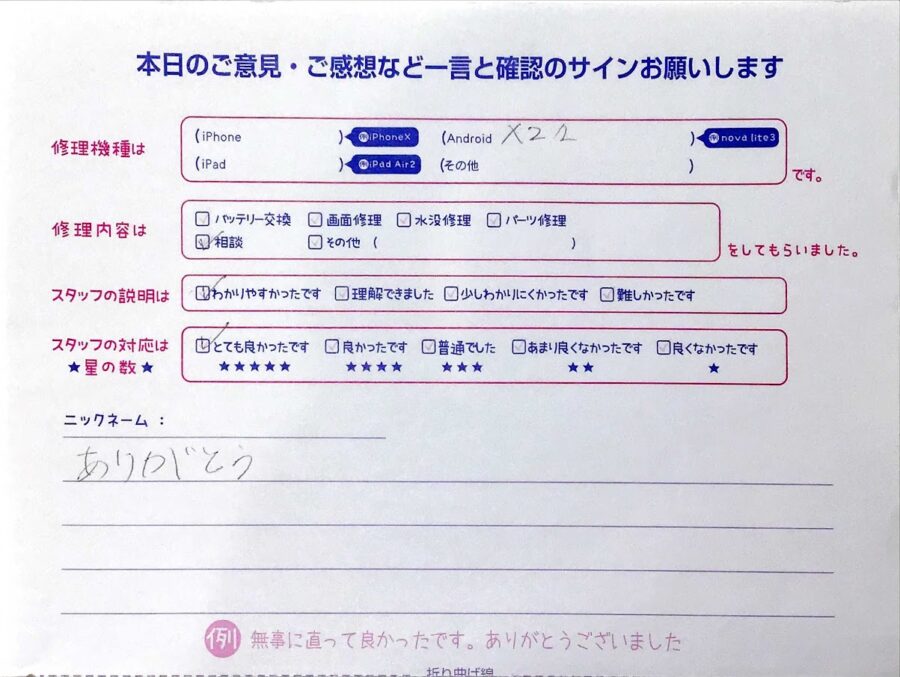 本日のご意見・ご感想など一言と確認のサインお願いします
修理機種は
(iPhone ) 例iPhoneX (Android ) 例nova lite3
(iPad ) 例iPad Air2 (その他 )
です。
修理内容は
バッテリー交換 画面修理 水没修理 パーツ修理
相談 その他 ( )
をしてもらいました。
スタッフの説明は
わかりやすかったです 理解できました 少しわかりにくかったです 難しかったです
スタッフの対応は
★星の数★
とても良かったです 良かったです 普通でした あまり良くなかったです 良くなかったです
★★★★★ ★★★★ ★★★ ★★ ★
ニックネーム :
ありがとう
例 無事に直って良かったです。ありがとうございました
折り曲げ線